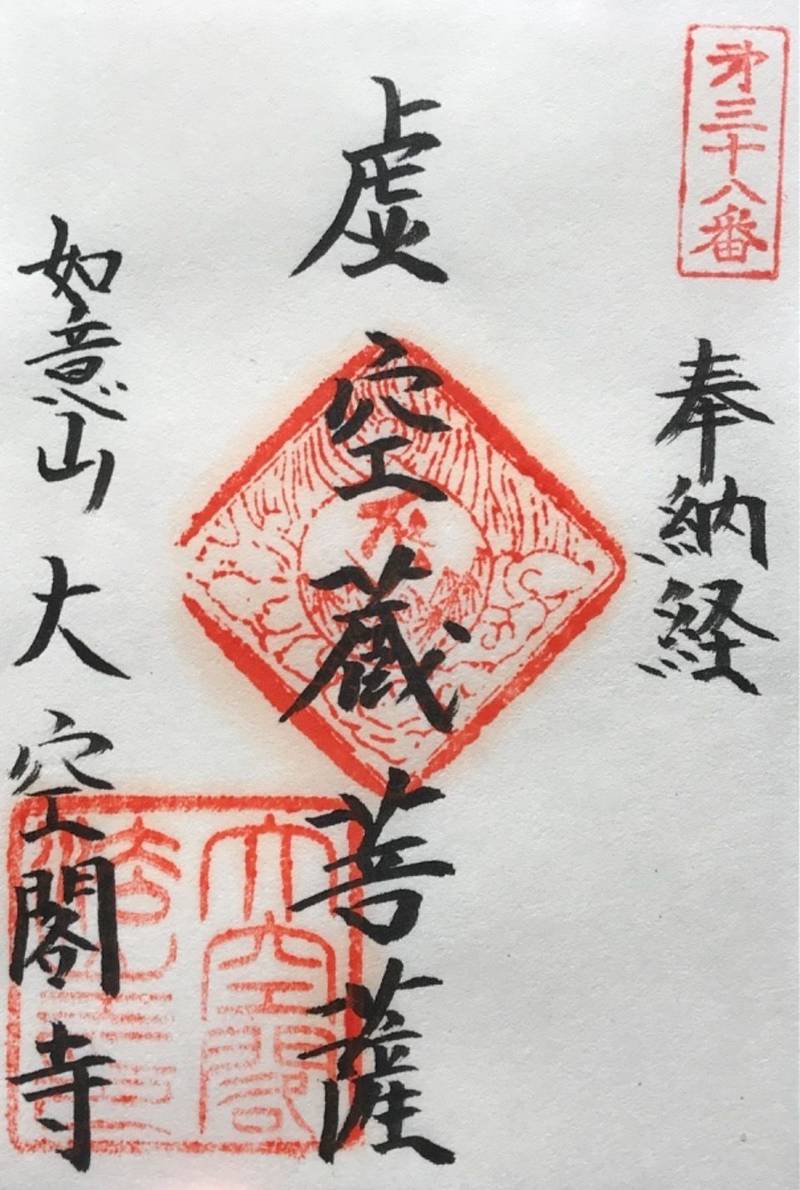 㐧三十八番
奉納経
虚空蔵菩薩
如意山 大空閣寺
大空閣